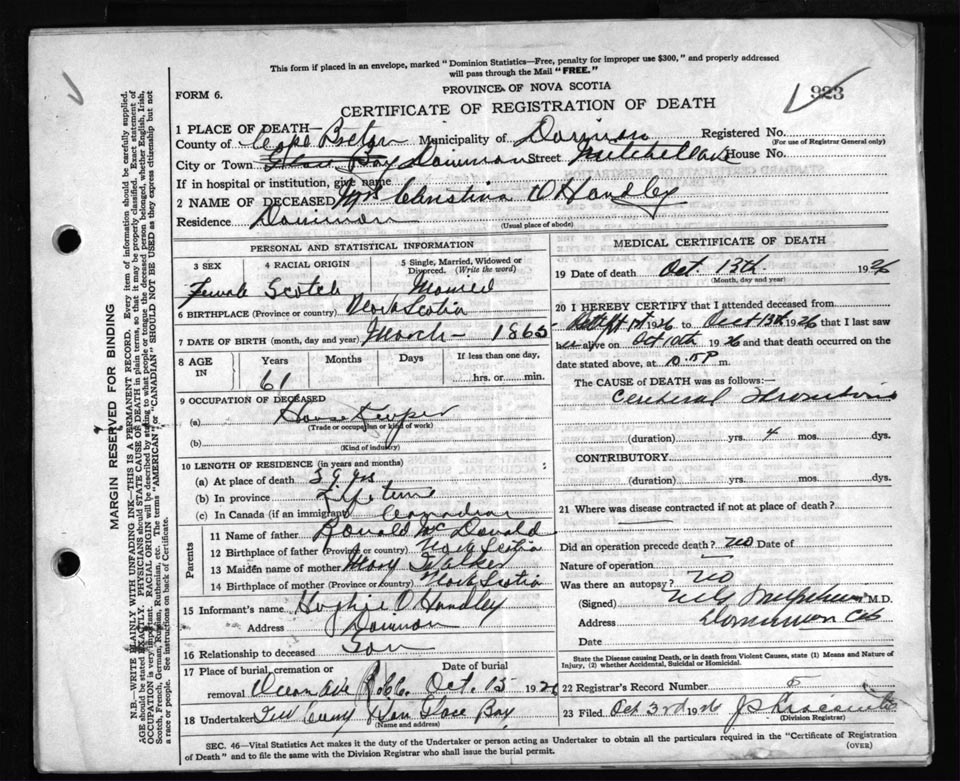 This form if placed in an envelope, marked "Dominion Statistics—Free, penalty for improper use $300," and properly addressed
will pass through the Mail "FREE."
PROVINCE OF NOVA SCOTIA
FORM 6.
923
CERTIFICATE OF REGISTRATION OF DEATH
1 PLACE OF DEATH—
County of Cape Breton Municipality of Dominion Registered No.
(For use of Registrar General only)
City or Town Glace Bay Dominion Street Mitchell Ave House No.
If in hospital or institution, give name
2 NAME OF DECEASED Mrs Christina O Handley
Residence Dominion
(Usual place of abode)
PERSONAL AND STATISTICAL INFORMATION
3 SEX 4 RACIAL ORIGIN 5 Single, Married, Widowed or Divorced. (Write the word)
Female Scotch Married
6 BIRTHPLACE (Province or country) Nova Scotia
7 DATE OF BIRTH (month, day and year) March - 1865
8 AGE IN Years Months Days If less than one day,
61 hrs. or min.
9 OCCUPATION OF DECEASED
(a) House Keeper
(Trade or occupation or kind of work)
(b)
(Kind of industry)
10 LENGTH OF RESIDENCE (in years and months)
(a) At place of death yrs
(b) In province Life time
(c) In Canada (if an immigrant) Canadian
Parents
11 Name of father Ronald McDonald
12 Birthplace of father (Province or country) Nova Scotia
13 Maiden name of mother Mary Walker
14 Birthplace of mother (Province or country) Nova Scotia
15 Informant's name Hughie O Handley
Address Dominion
16 Relationship to deceased Son
17 Place of burial, cremation or removal Date of burial
Ocean Ave Oct. 15 1926
18 Undertaker Glace Bay
(Name and address)
MEDICAL CERTIFICATE OF DEATH
19 Date of death Oct. 13th. 1926
(Month, day and year)
20 I HEREBY CERTIFY that I attended deceased from
1st 1926 to Oct 13th 1926 that I last saw
her alive on Oct 10th 1926 and that death occurred on the
date stated above, at P m.
The CAUSE of DEATH was as follows:
Cerebral Thrombosis
(duration) yrs. 4 mos. dys.
CONTRIBUTORY
(duration) yrs. mos. dys.
21 Where was disease contracted if not at place of death?
Did an operation precede death? no Date of
Nature of operation
Was there an autopsy? no
(Signed) M.D.
Address Dominion CB
Date
State the Disease causing Death, or in death from Violent Causes, state (1) Means and Nature of
Injury, (2) whether Accidental, Suicidal or Homicidal.
22 Registrar's Record Number
23 Filed Oct 3rd 1926
(Division Registrar)
SEC. 46—Vital Statistics Act makes it the duty of the Undertaker or person acting as Undertaker to obtain all the particulars required in the "Certificate of Registration
of Death" and to file the same with the Division Registrar who shall issue the burial permit. (OVER)
MARGIN RESERVED FOR BINDING
N.B.—WRITE PLAINLY WITH UNFADING INK—THIS IS A PERMANENT RECORD. Every item of information should be carefully supplied.
AGE should be stated EXACTLY. PHYSICIANS should STATE CAUSE OF DEATH in plain terms, so that it may be properly classified. Exact statement of
OCCUPATION is very important. RACIAL ORIGIN will be described by stating to what people or tongue the deceased person belonged, whether English, Irish,
Scotch, French, German, Russian, Ruthenian, etc. The terms "AMERICAN" or "CANADIAN" SHOULD NOT BE USED as they express citizenship but not
a race or people. See instructions on back of Certificate.